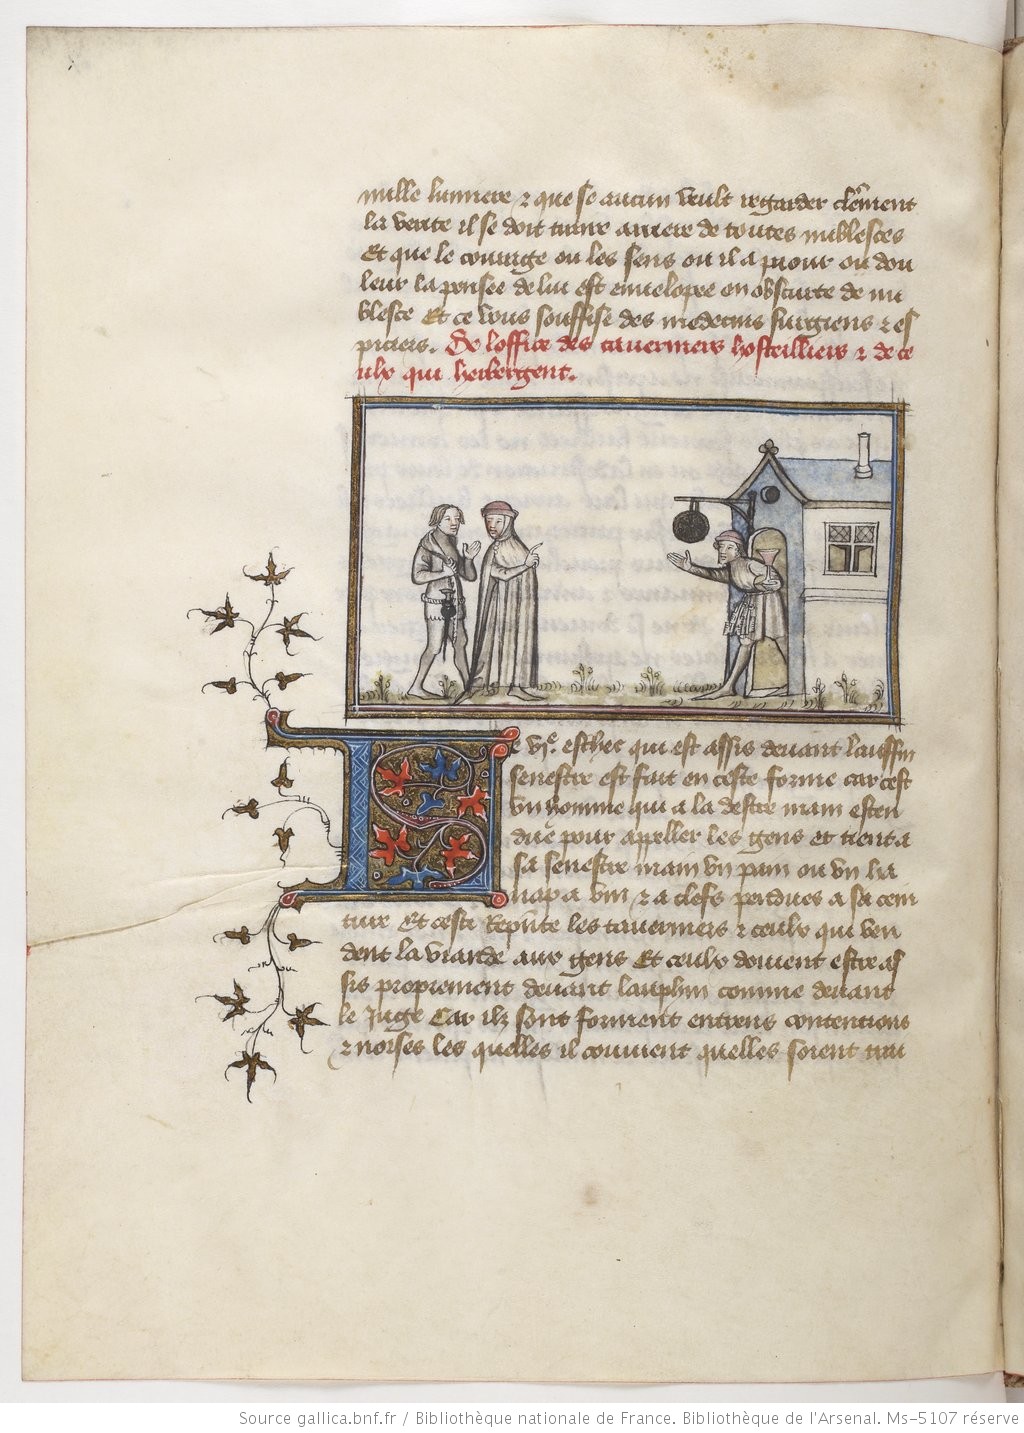 nulle lumiere ⁊ que se aucun veult regarder cleremẽt
la verite il se doit traire arriere de toutes nublesces
Et que le courage ou les sens ou il a paour ou dou
leur la pensee de lui est enuelopee en obscurte de nu
blesce Et ce vous souffise des medecins surgiens ⁊ es
piciers. De loffice des tauerniers hosteilliers ⁊ de ce
ulx qui herbergent.
Le vjᵉ. eschec qui est assis deuant lauffin
senestre est fait en ceste forme car cest
vn homme qui a la destre main esten
due pour appeller les gens et tient a
sa senestre main vn pain ou vn ha
nap a vin ⁊ a clefs pendues a sa cein
ture Et ceste Rep̃nte les tauerniers ⁊ ceulx qui ven
dent la viande aux gens Et ceulx doiuent estre as
sis proprement deuant lauphin comme deuant
le Juge Car ilz sont souuent entreus contencions
⁊ noises les quelles il conuient quelles soient trai
Source gallica.bnf.fr / Bibliothèque nationale de France. Bibliothèque de l'Arsenal. Ms-5107 réserve